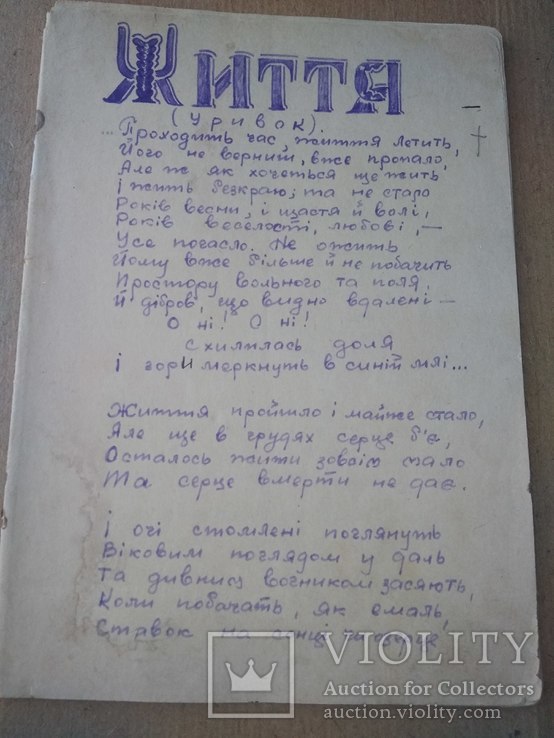 ЖИТТЯ
(Уривок).
...Проходить час, життя летить,
Його не вернить, вже пропало,
Але ж як хочеться ще жить
І жить безкраю; та не стало
Років весни, і щастя й волі,
Років веселості, любові, —
Усе погасло. Не ожить
Йому вже більше й не побачить
Простору вольного та поля,
Й дібров, що видно вдалені —
О ні! О ні!
Схилилась доля
І гори меркнуть в синій млі...
Життя пройшло і майже стало,
Але ще в грудях серце б'є,
Осталось жити зовсім мало
Та серце вмерти не дає.
І очі стомлені поглянуть
Віковим поглядом у даль
Та дивним вогником засяють,
Коли побачать, як емаль,
Ставок на сонці
VIOLITY
Auction for Collectors
auction.violity.com